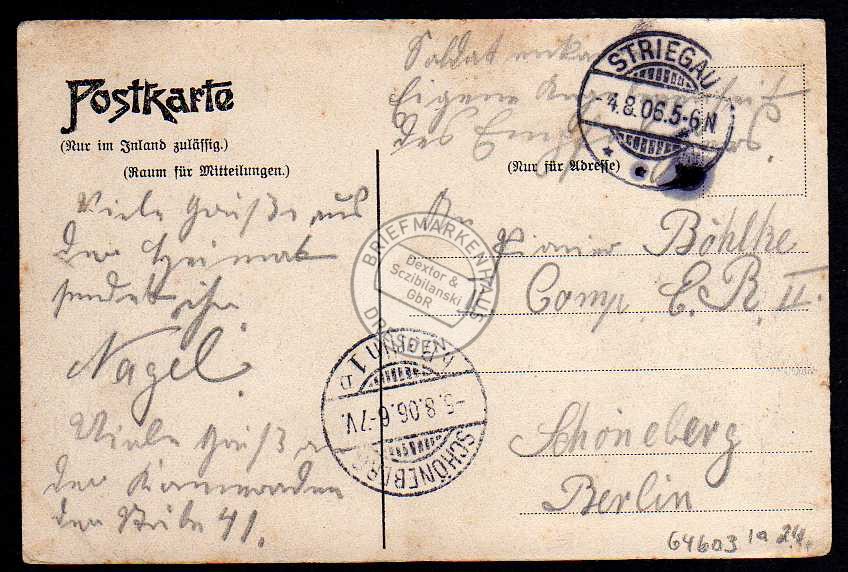 Postkarte
(Nur im Inland zulässig.)
(Raum für Mitteilungen.)
Viele Grüße aus
der Heimat
sendet ihr
Nagel.
Viele Grüße an
der Kammeraden
der Stube 41.
Soldaten
Eigene Angelegenheit
des Empfängers.
(Nur für Adresse)
STRIEGAU
-4.8.06.5-6N
An
Pionier Böhlke
Comp. E. R. II.
Schöneberg
Berlin
SCHÖNEBERG
-5.8.06.6-7V.
BRIEFMARKENHAUS
Dextor &
Sczibilanski
GbR
DRESDEN
64603 1a 24.